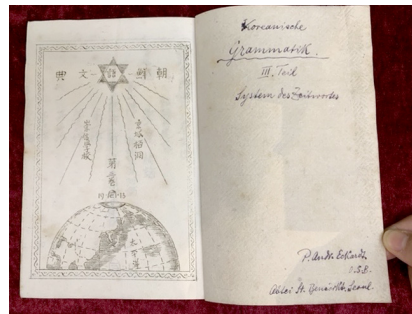 朝鮮語文典
京城栢洞
Koreanische
Grammatik.
III. Teil
System des Zeitwortes
P. Andr. Eckardt
O.S.B.
Abtei St. Benedikt, Seoul.